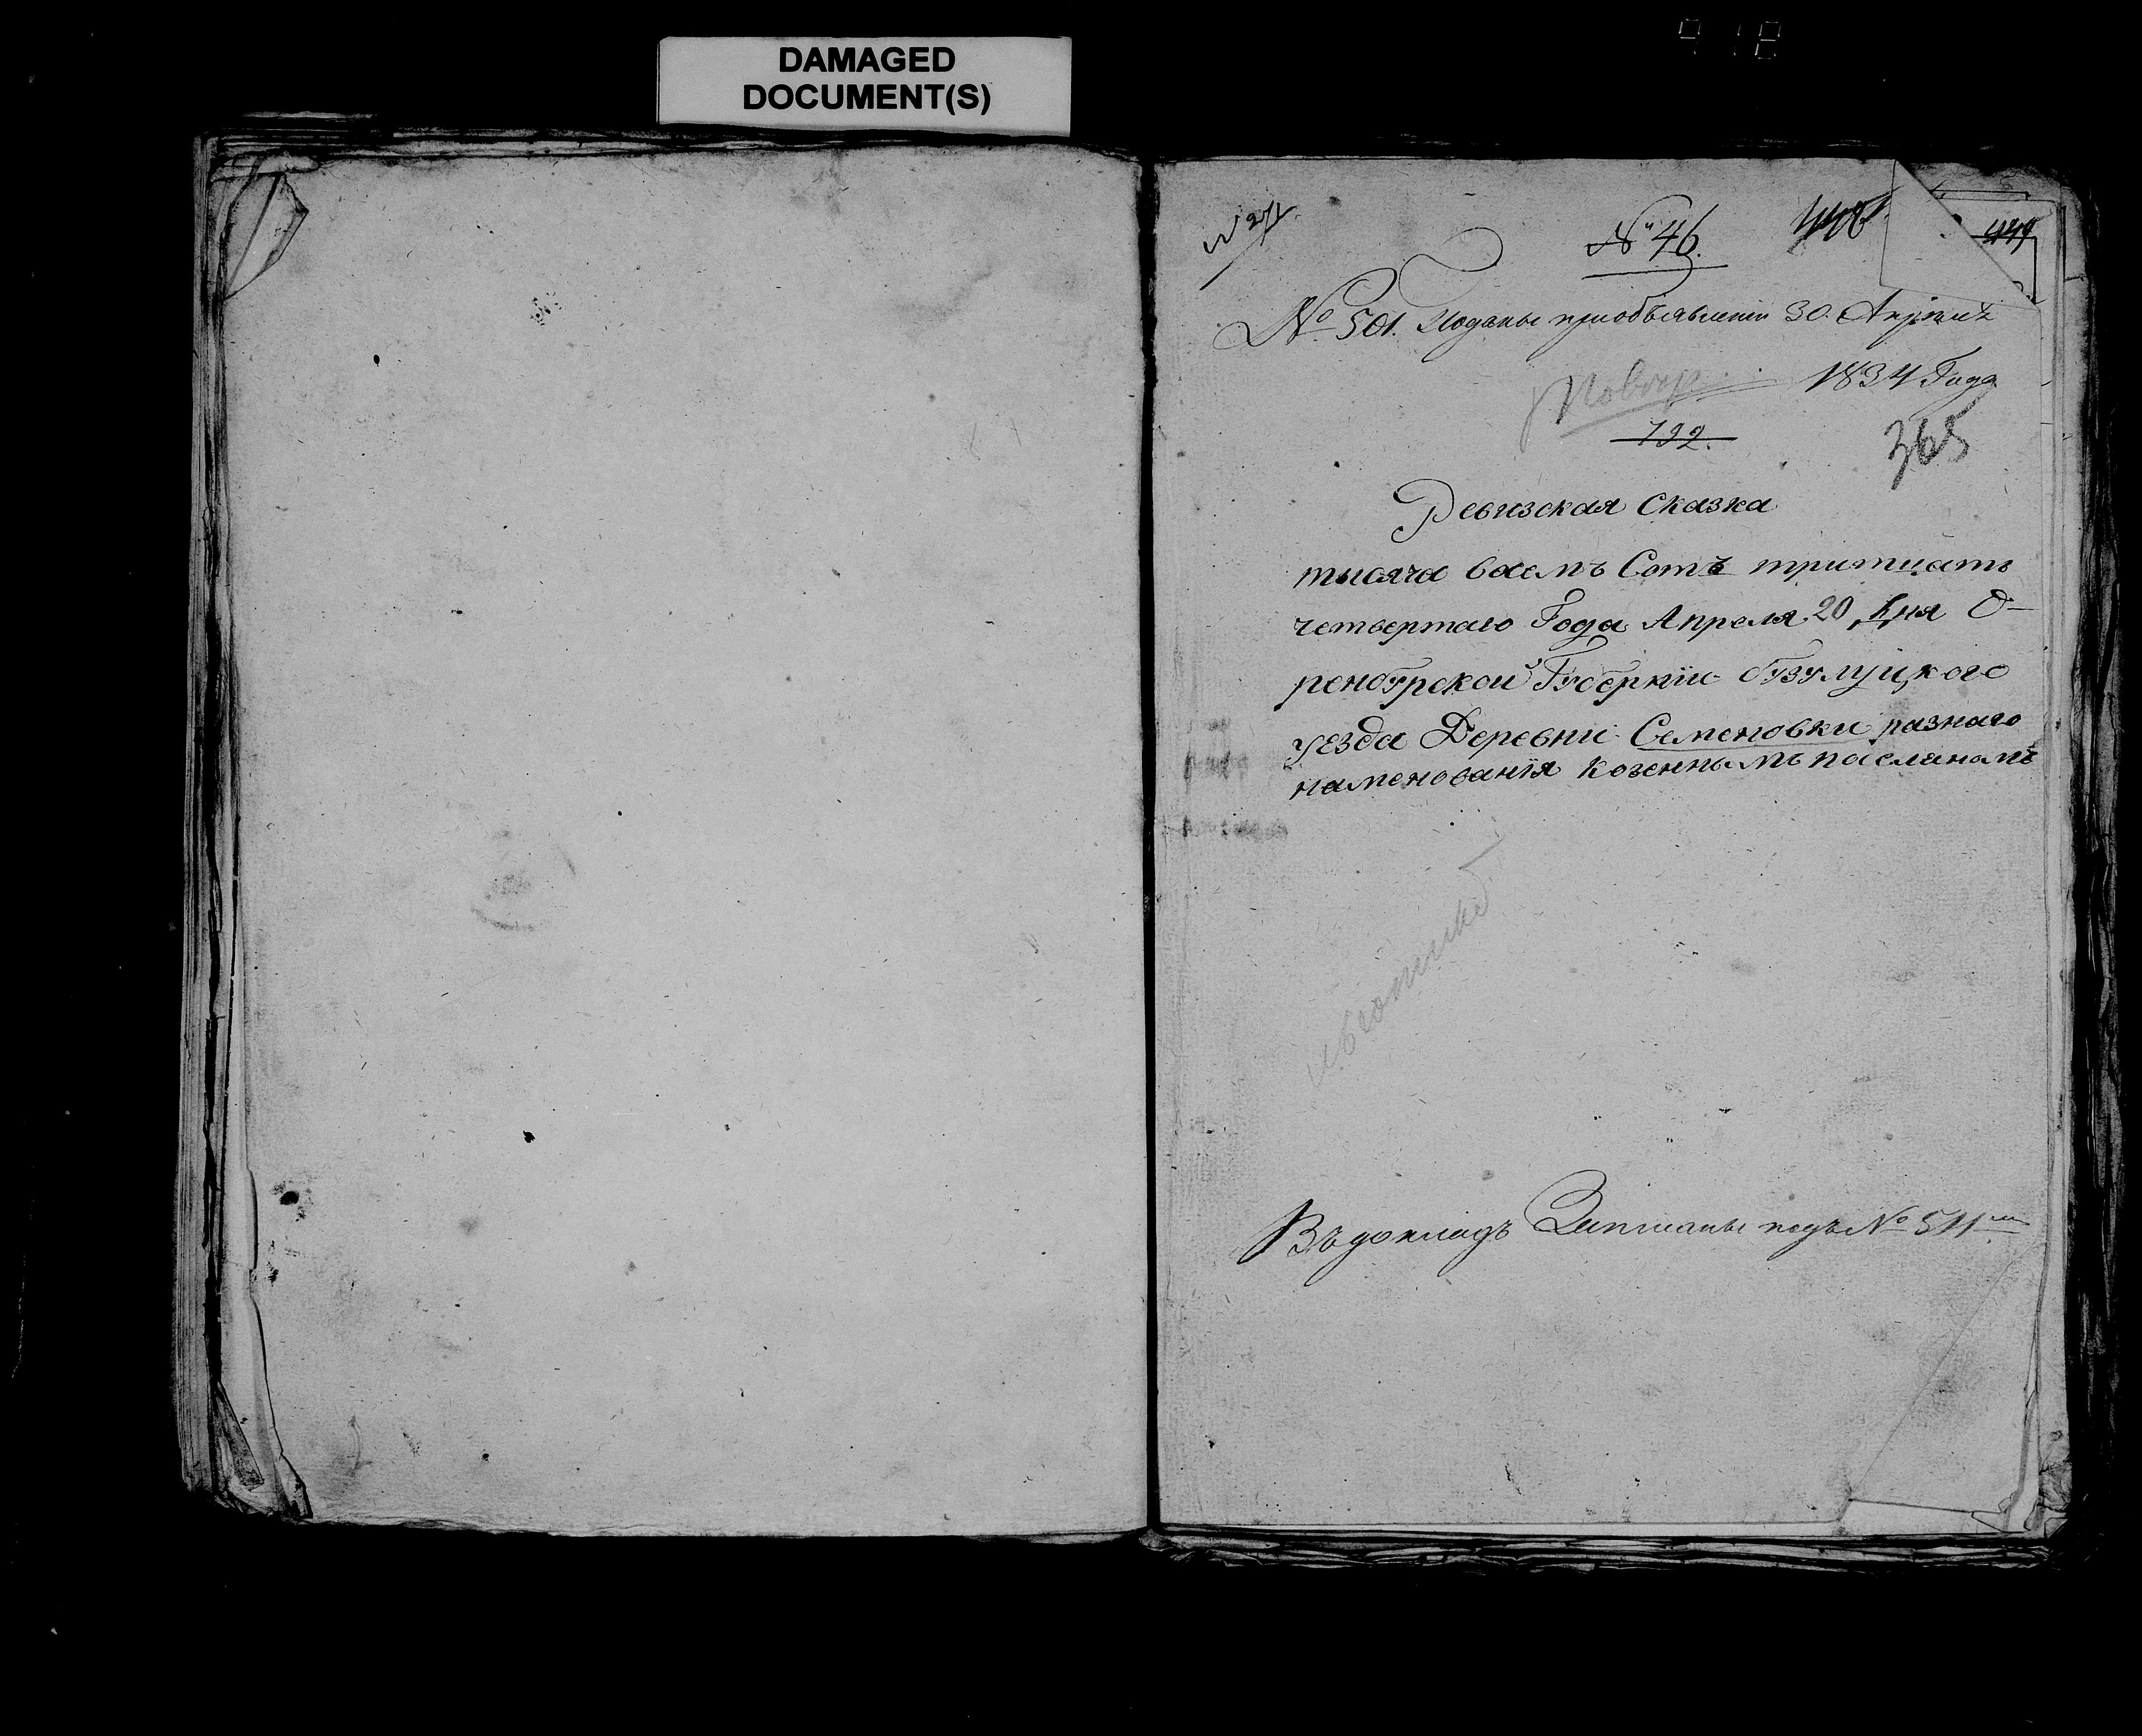 DAMAGED
DOCUMENT(S)
№ 46.
№ 501. Поданы приобъявлении 30. Апреля
1834 Года
192.
365
Ревизская Сказка
тысяча восемъ Сотъ тритцать
четвертаго Года Апреля 20 дня О-
ренбургской Губернiи бузулуцкого
уезда Деревни Семеновки разнаго
наменованiя козенным поселянамъ
Въ докладъ Записаны подъ № 511